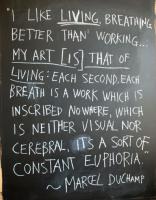 "I LIKE LIVING, BREATHING
BETTER THAN WORKING...
MY ART [IS] THAT OF
LIVING: EACH SECOND, EACH
BREATH IS A WORK WHICH IS
INSCRIBED NOWHERE, WHICH
IS NEITHER VISUAL NOR
CEREBRAL, IT'S A SORT OF
CONSTANT EUPHORIA."
~ MARCEL DUCHAMP